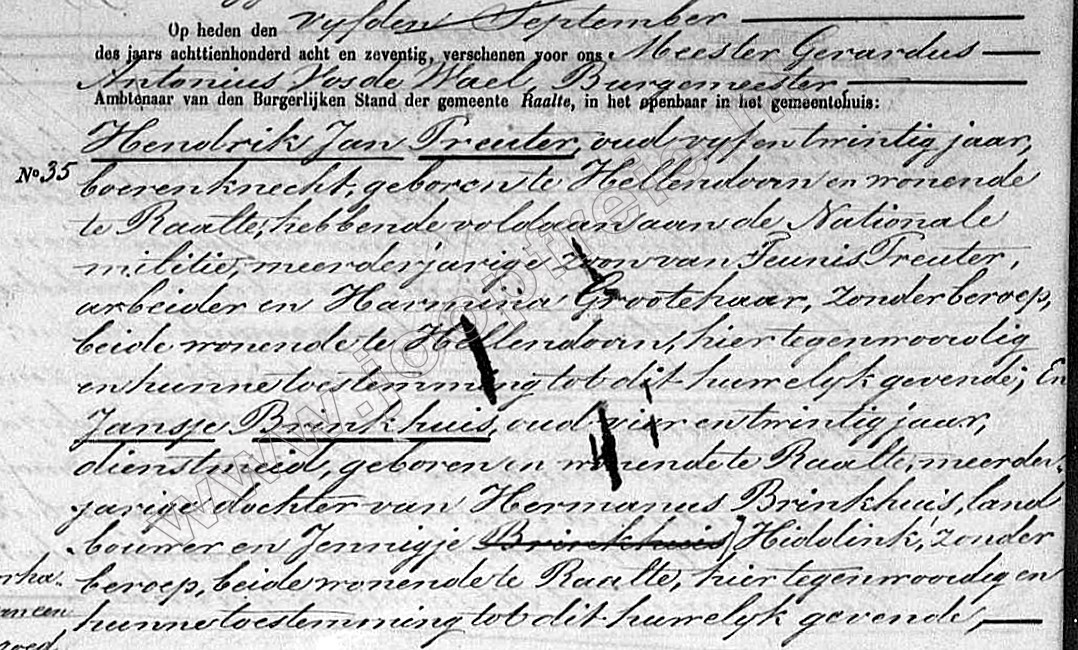 Op heden den vyfden September
des jaars achttienhonderd acht en zeventig, verschenen voor ons Meester Gerardus
Antonius Vos de Wael, Burgemeester,
Ambtenaar van den Burgerlijken Stand der gemeente Raalte, in het openbaar in het gemeentehuis:
Hendrik Jan Treuter, oud vyf en twintig jaar,
No. 35
boerenknecht, geboren te Hellendoorn en wonende
te Raalte, hebbende voldaan aan de Nationale
militie, meerderjarige zoon van Teunis Treuter,
arbeider en Harmina Grootehaar, zonder beroep,
beide wonende te Hellendoorn, hier tegenwoordig
en hunne toestemming tot dit huwelyk gevende; En
Jansje Brinkhuis, oud vier en twintig jaar,
dienstmeid, geboren en wonende te Raalte, meerder-
jarige dochter van Hermanus Brinkhuis, land
bouwer en Jennigje Brinkhuis, Hiddink, zonder
beroep, beide wonende te Raalte, hier tegenwoordig en
hunne toestemming tot dit huwelyk gevende,